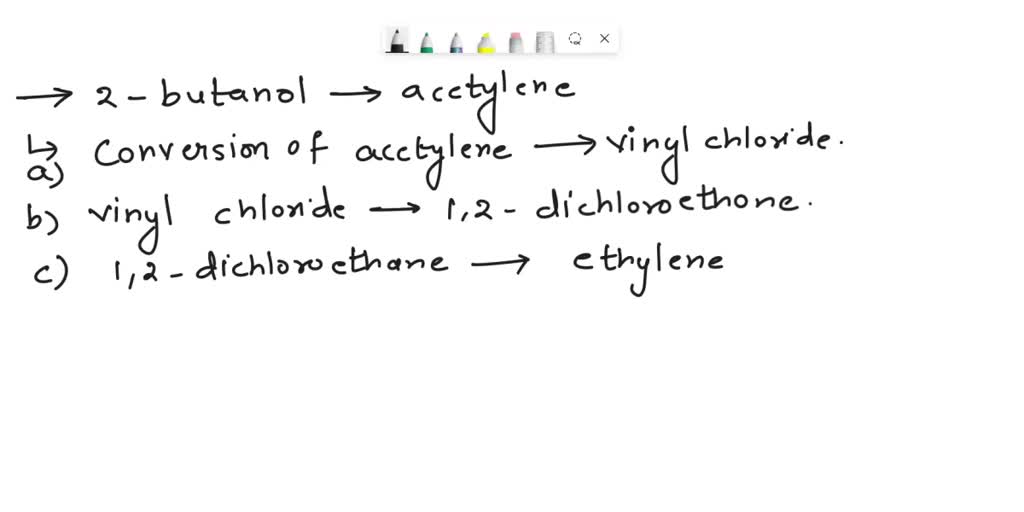 → 2-butanol → acetylene
↳ a) Conversion of acetylene → vinyl chloride.
b) vinyl chloride → 1,2-dichloroethone.
c) 1,2-dichloroethane → ethylene